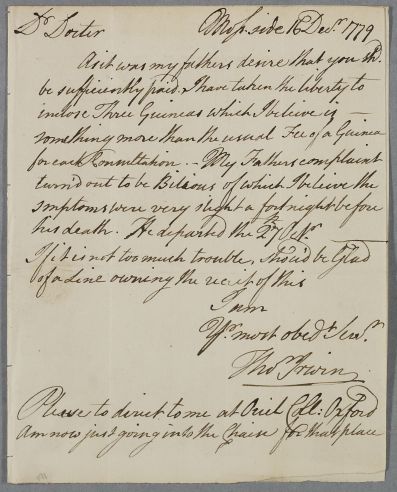 Dr. Doctor Mossside 16 Decr. 1779
As it was my fathers desire that you shd.
be sufficiently paid. I have taken the liberty to
inclose Three Guineas which I believe is —
something more than the usual Fee of a Guinea
for each Consultation. - My Fathers complaint
turn'd out to be Bilious of which I believe the
smptoms were very slight a fortnight before
his death. He departed the 27th
If it is not too much trouble, should be Glad
of a Line owning the receit of this
I am
Yr. most obedt. Servt.
Thos. Irwin
Please to direct to me at Oriel Coll: Oxford
Am now just going into the Chaise for that place